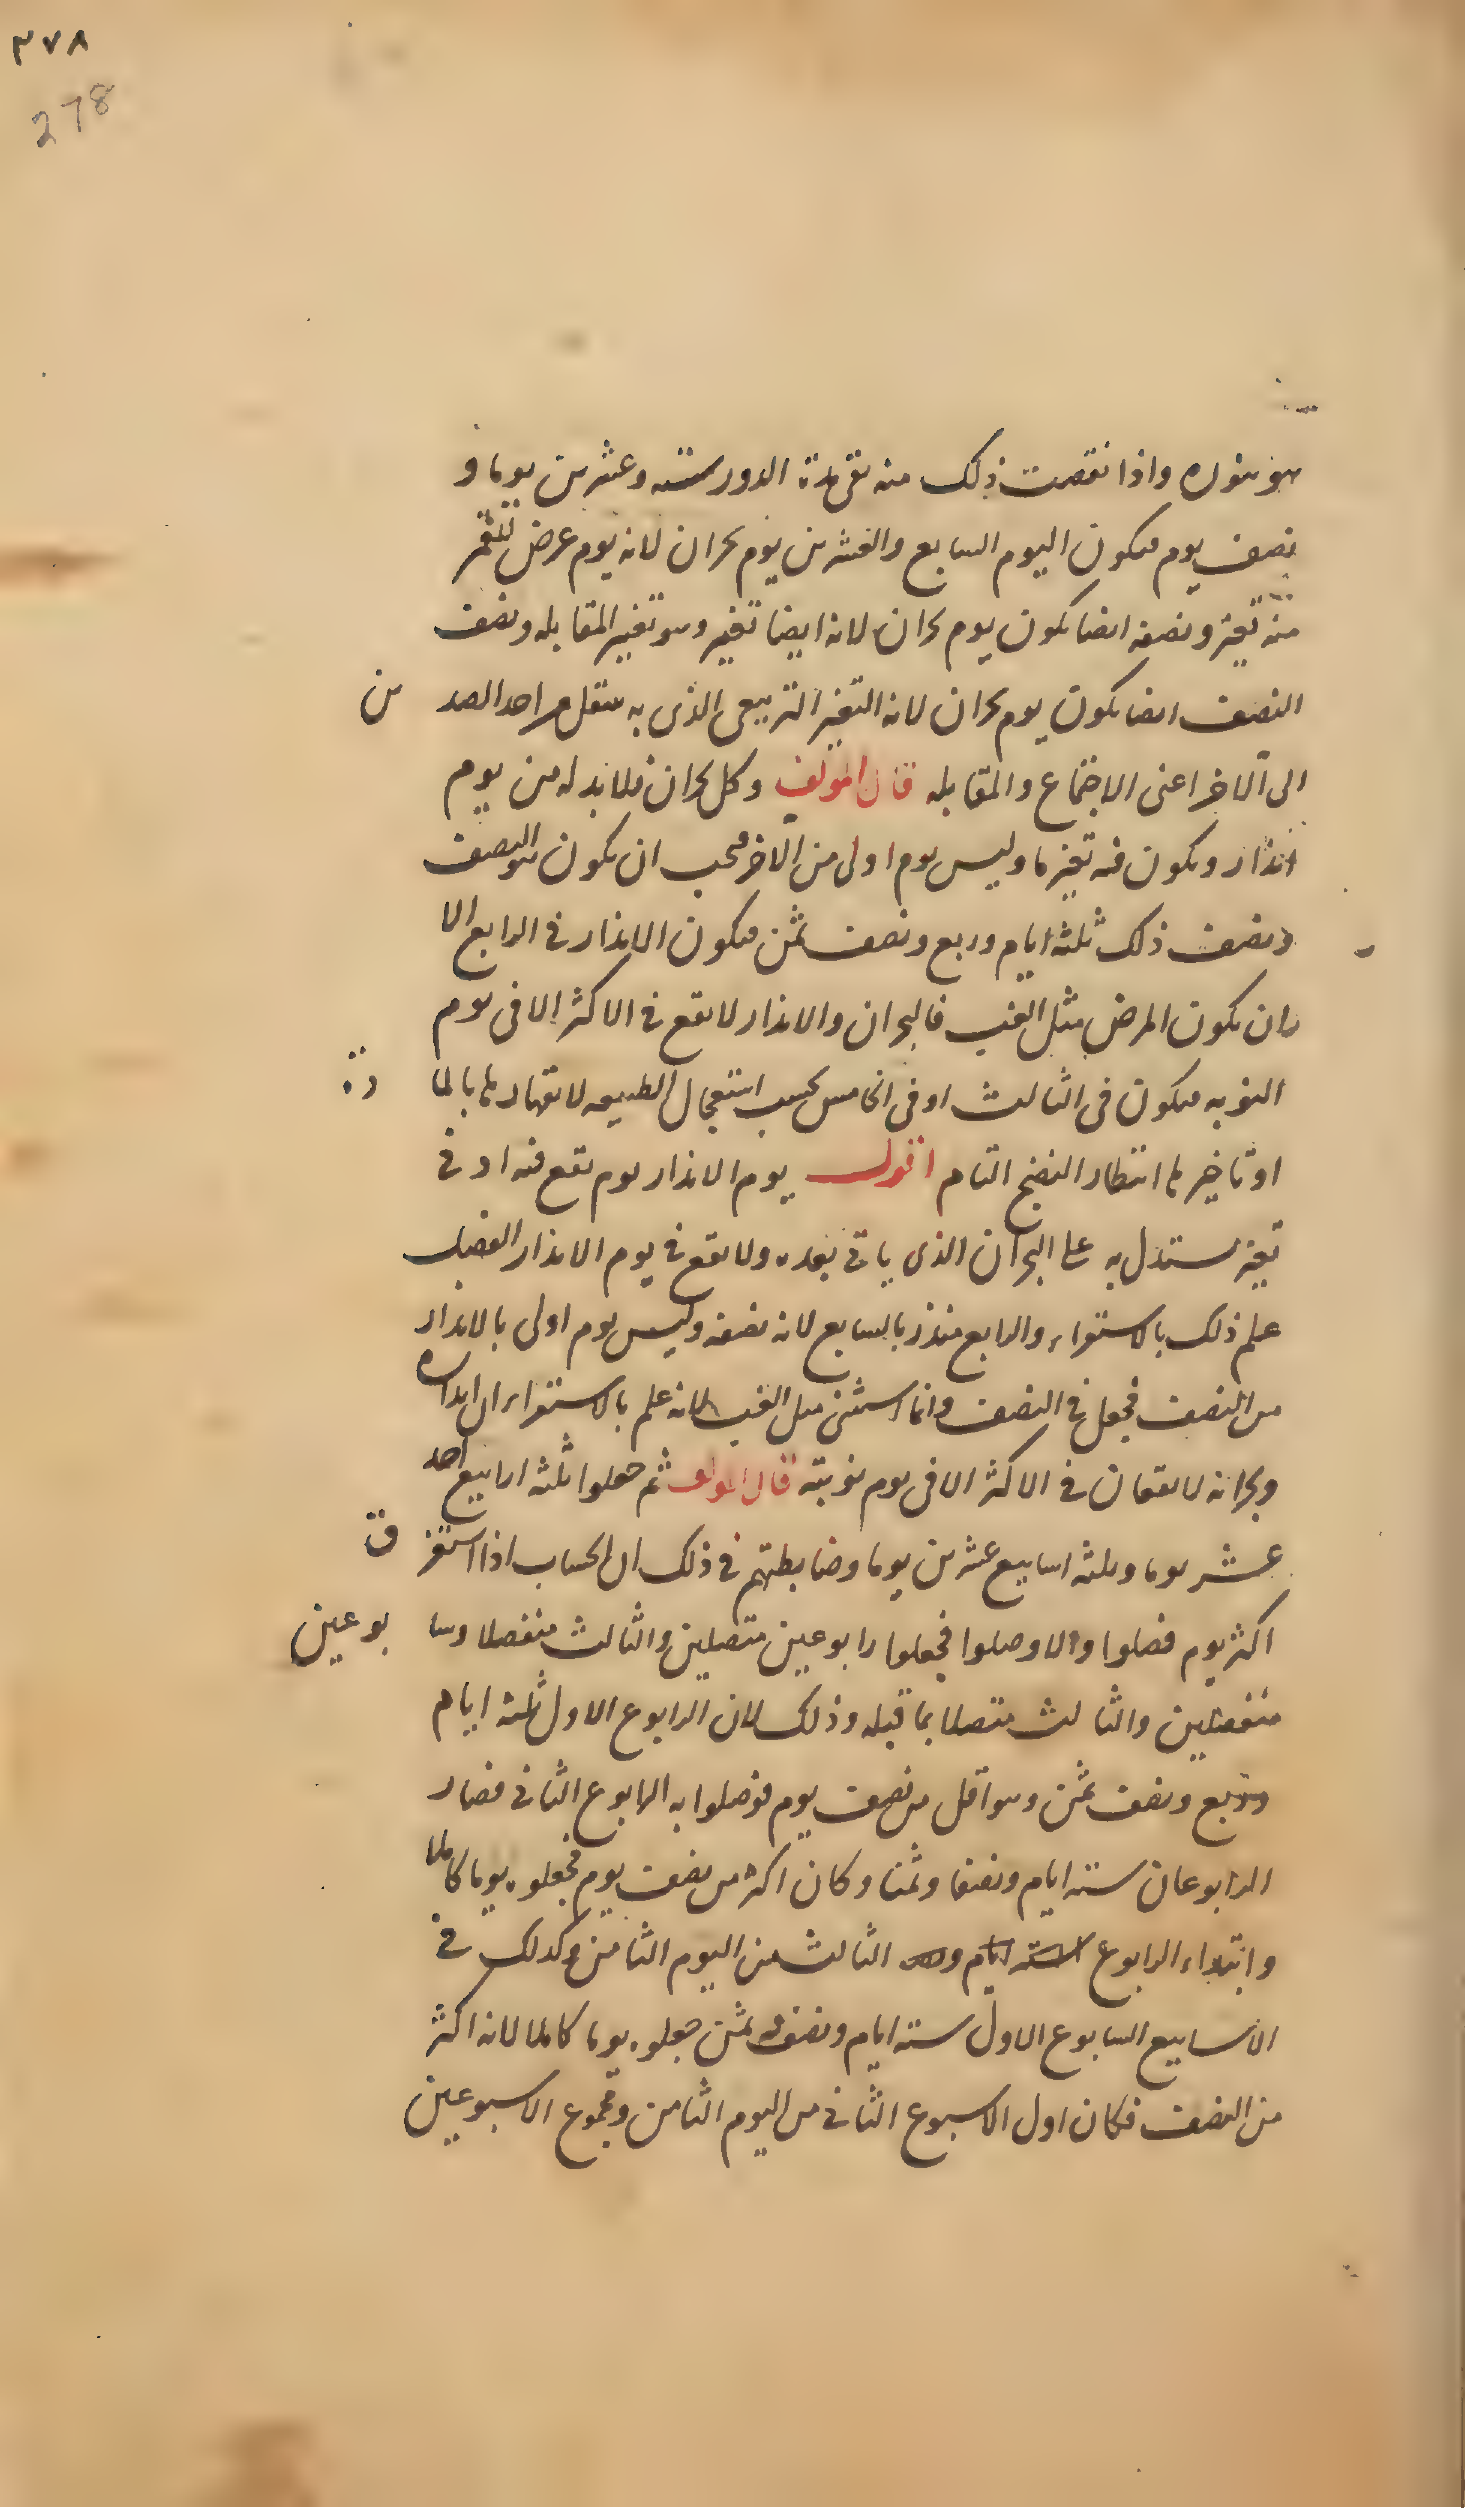 ٣٧٨
278
واذا نقصت ذلك منه بقى مدة الدور ستة وعشرين يوما و
نصف يوم فيكون اليوم السابع والعشرين يوم بحران لانه يوم عرض للقمر
منه تغير ونصفه ايضا يكون يوم بحران لانه ايضا تغير وهو تغير المقابله ونصف
النصف ايضا يكون يوم بحران لانه التغير التربيعى الذى به ينتقل من احد الضد ين
الى الآخر اعنى الاجتماع والمقابله قال المؤلف وكل بحران فلا بد له من يوم
انذار ويكون فيه تغير ما وليس يوم اولى من الآخر فيجب ان يكون هو النصف
ونصف ذلك ثلثه ايام وربع ونصف ثمن فيكون الانذار فى الرابع الا
ان يكون المرض مثل الغب فالبحران والانذار لا يقع فى الاكثر الا فى يوم
النوبه فيكون فى الثالث او فى الخامس بحسب استعجال الطبيعه لانقهارها بالما دة
او تاخيرها انتظار النضج التام اقول يوم الانذار يوم يقع فيه او فى
تغير يستدل به على البحران الذى ياتى بعده ولا يقع فى يوم الانذار الفصل
علم ذلك بالاستقراء والرابع منذر بالسابع لانه نصفه وليس يوم اولى بالانذار
من النصف فجعل فى النصف وانما استثنى مثل الغب لانه علم بالاستقراء ان انذاره
وبحرانه لا يقعان فى الاكثر الا فى يوم نوبته قال المولف ثم جعلوا ثلثه ارابيع احد
عشر يوما وثلثه اسابيع عشرين يوما وضابطتهم فى ذلك ان الحساب اذا استغر ق
اكثر يوم فصلوا والا وصلوا فجعلوا رابوعين متصلين والثالث منفصلا وسا بوعين
منفصلين والثالث متصلا بما قبله وذلك لان الرابوع الاول ثلثه ايام
وربع ونصف ثمن وهو اقل من نصف يوم فوصلوا به الرابوع الثانى فصار
الرابوعان ستة ايام ونصفا وثمنا وكان اكثر من نصف يوم فجعلوه يوما كاملا
وابتداء الرابوع الثالث من اليوم الثامن وكذلك فى
الاسابيع السابوع الاول ستة ايام ونصف وثمن جعلوه يوما كاملا لانه اكثر
من النصف فكان اول الاسبوع الثانى من اليوم الثامن ومجموع الاسبوعين